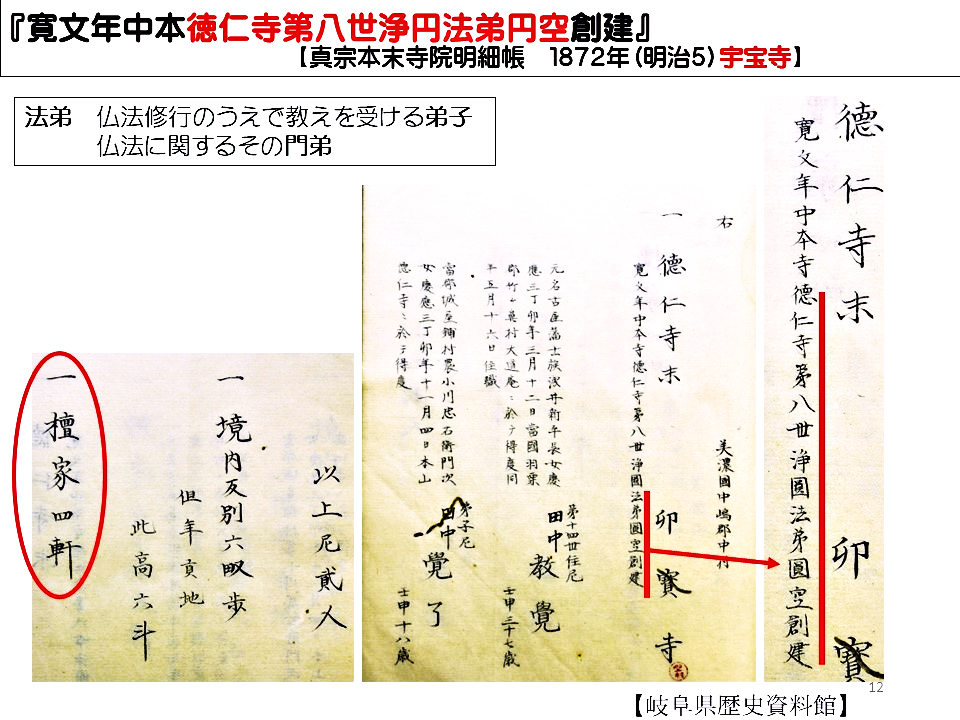 『寛文年中本徳仁寺第八世浄円法弟円空創建』
【真宗本末寺院明細帳　1872年(明治5)宇宝寺】
法弟　仏法修行のうえで教えを受ける弟子
仏法に関するその門弟
德仁寺末　卯寳
寛文年中本寺德仁寺第八世浄圓法弟圓空創建
右
美濃國中嶋郡中村
一　德仁寺末　卯寳寺
寛文年中本寺德仁寺第八世浄圓法弟圓空創建
元名古屋藩士族浅井新午長女慶
應三丁卯年三月十二日當國羽栗
郡竹ヶ鼻村大道庵ニ於テ得度同
年五月十六日住職
第十四世住尼
田中教覺
壬申三十七歳
當郡城屋鋪村農小川忠右衛門次
女慶應三丁卯年十一月四日本山
德仁寺ニ於テ得度
弟子尼
田中覺了
壬申十八歳
以上尼貳人
一　境内反別六畝歩
但年貢地
此高六斗
一　檀家四軒
12
【岐阜県歴史資料館】